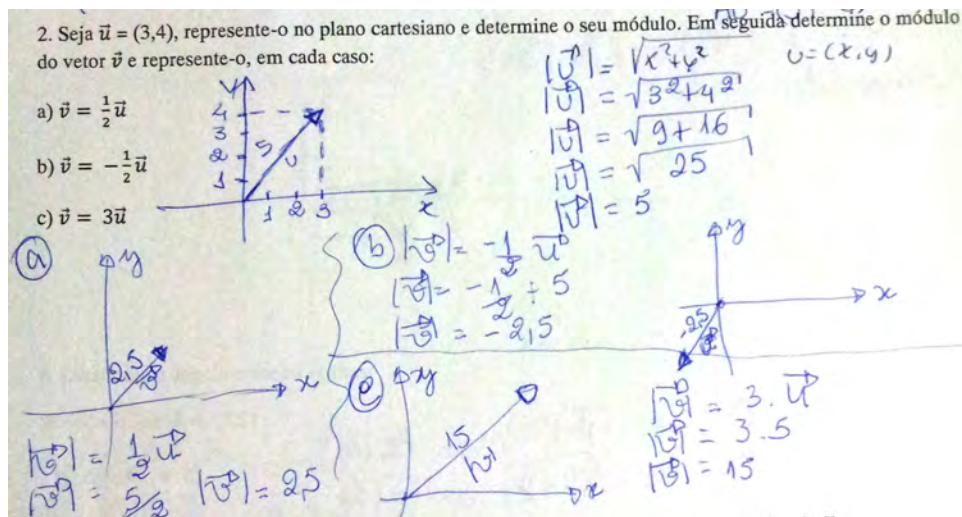 2. Seja u⃗ = (3,4), represente-o no plano cartesiano e determine o seu módulo. Em seguida determine o módulo
do vetor v⃗ e represente-o, em cada caso:
a) v⃗ = 1/2 u⃗
b) v⃗ = −1/2 u⃗
c) v⃗ = 3u⃗
y
4
3
2
1
5
u
1 2 3
x
|u⃗| = √x²+y²
u=(x,y)
|u⃗| = √3²+4²
|u⃗| = √9+16
|u⃗| = √25
|u⃗| = 5
a
y
2,5
v⃗
x
|v⃗| = 1/2 u⃗
|v⃗| = 5/2
|v⃗| = 2,5
b
|v⃗| = -1/2 u⃗
|v⃗| = -1/2 ÷ 5
|v⃗| = -2,5
y
x
2,5
v⃗
c
y
15
|v⃗|
x
|v⃗| = 3.u⃗
|v⃗| = 3.5
|v⃗| = 15